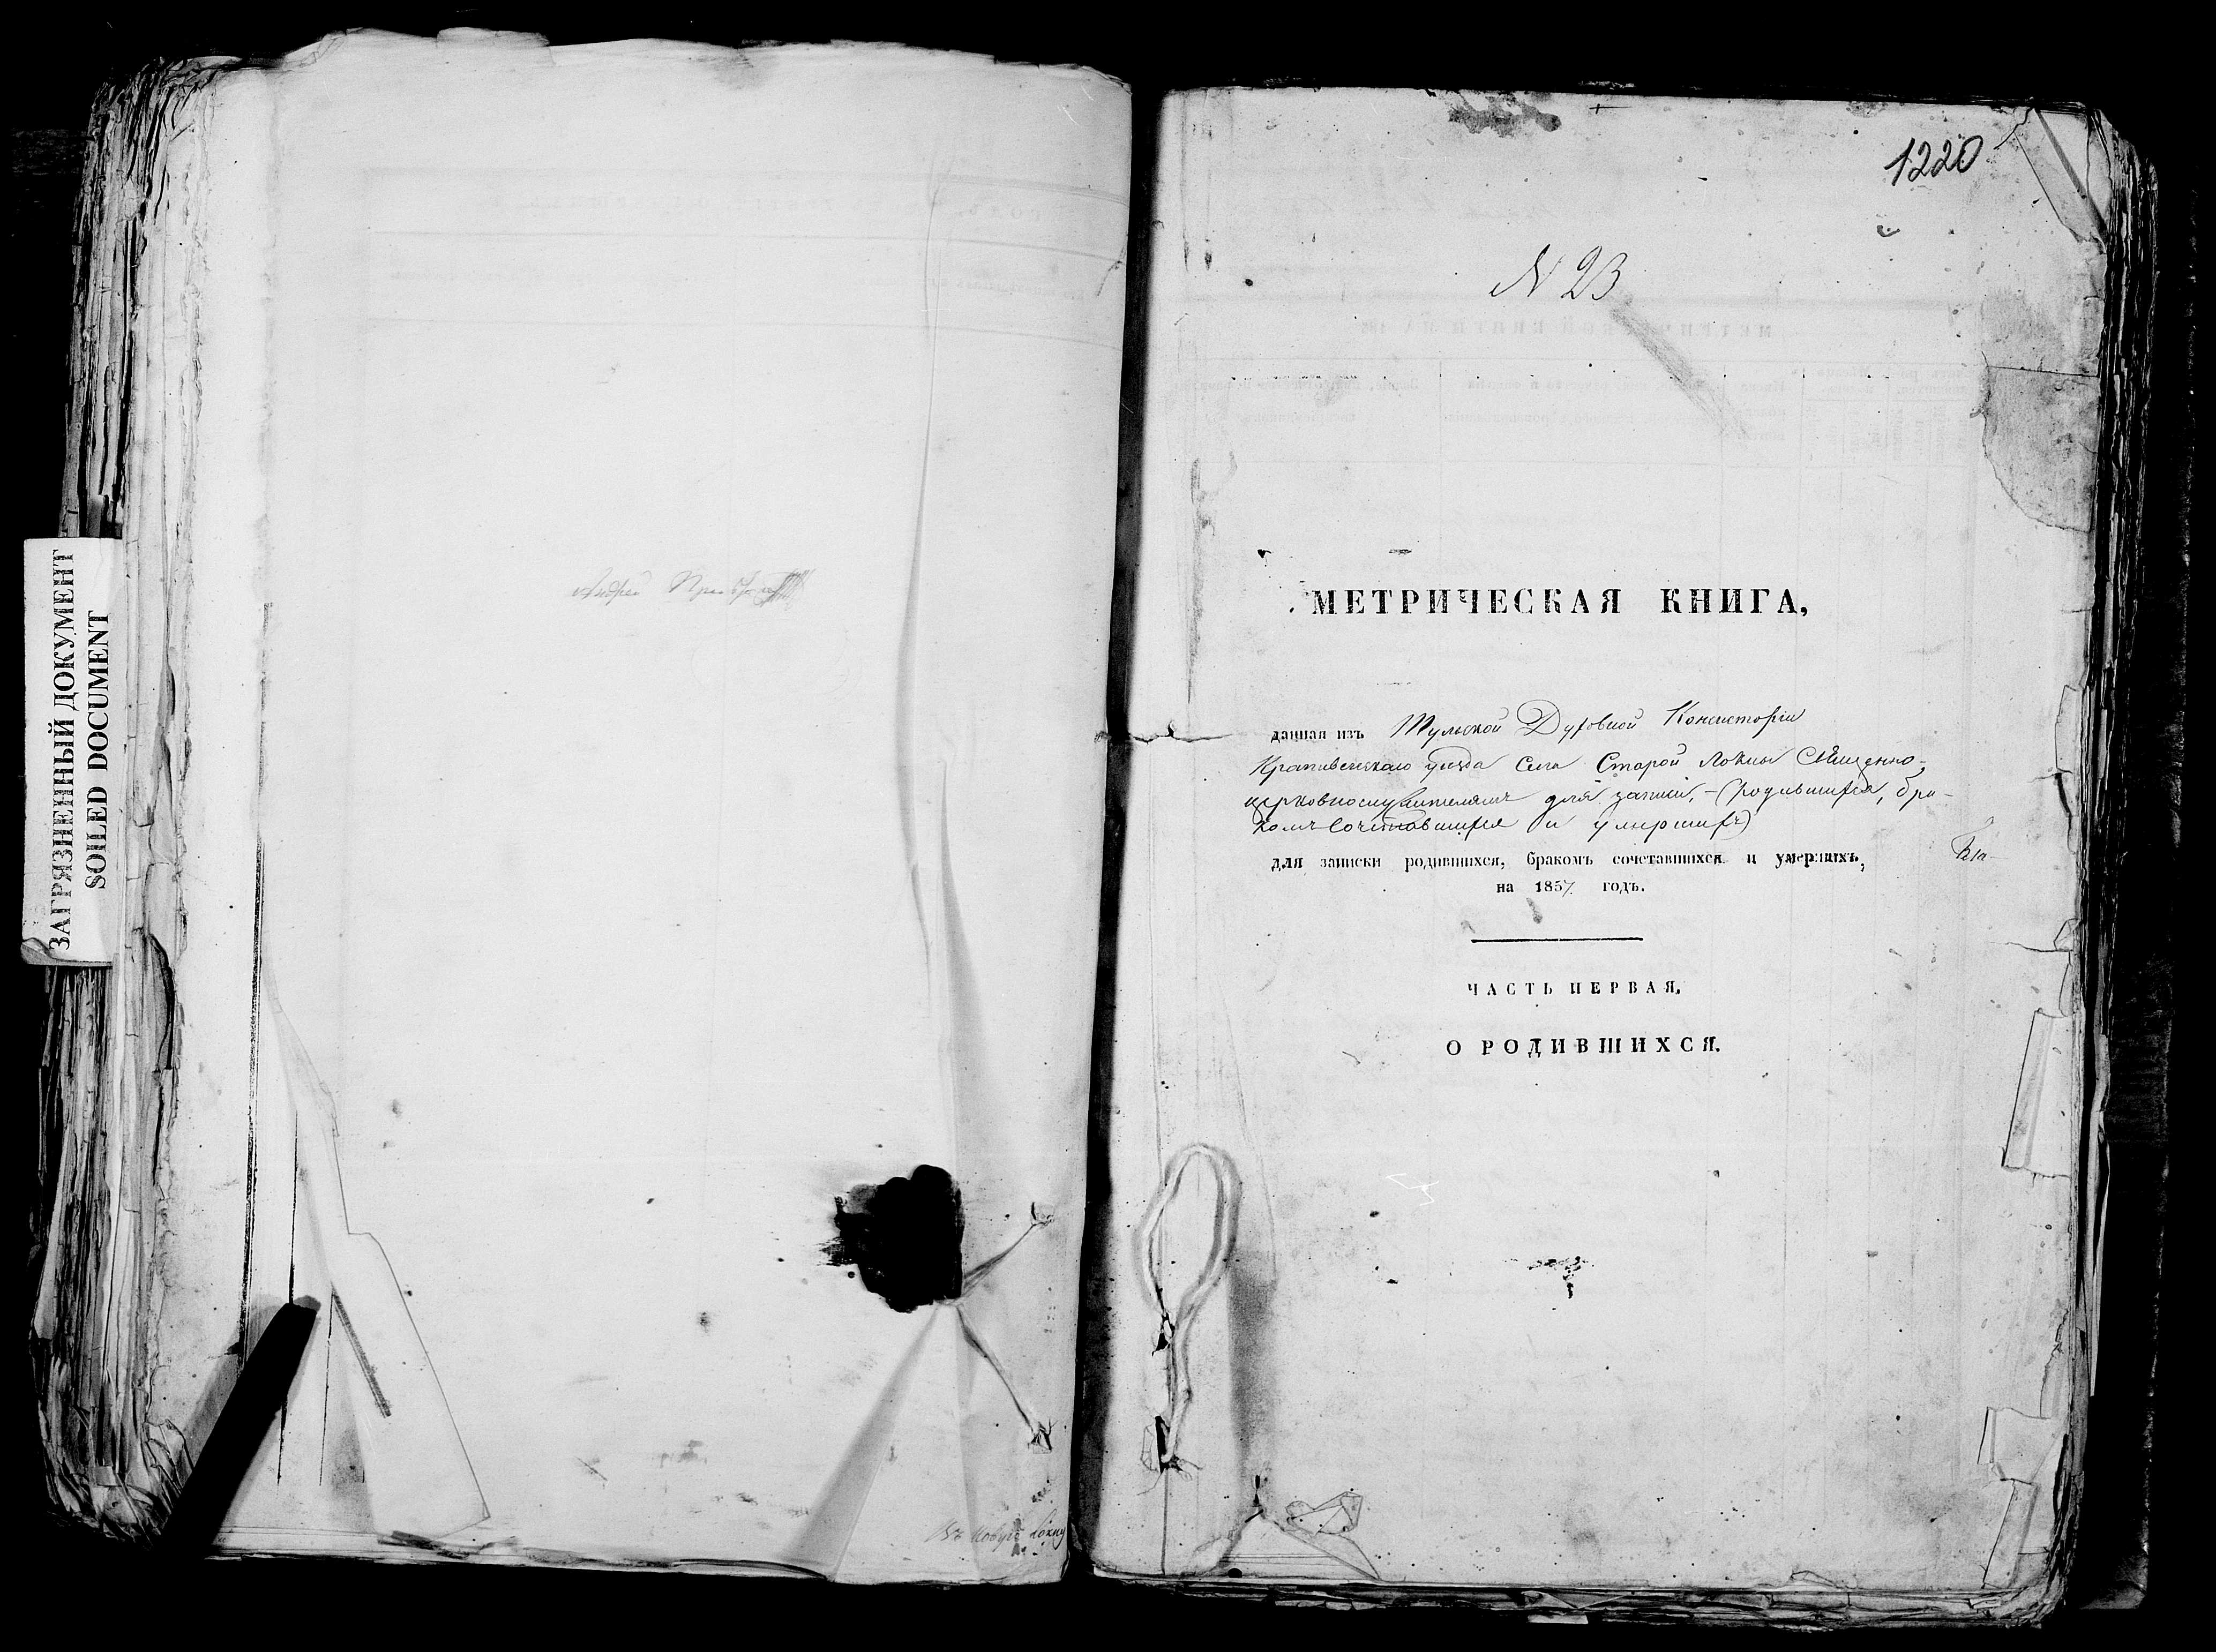 ЗАГРЯЗНЕННЫЙ ДОКУМЕНТ
SOILED DOCUMENT
Андрей
въ новую Локну
1220
N 23
МЕТРИЧЕСКАЯ КНИГА,
данная изъ Тульской Духовной Консисторіи
Крапивенскаго уѣзда Села Старой Локны Священно-
церковнослужителямъ для записки, (родившихся, бра-
комъ сочетавшихся и умершихъ)
для записки родившихся, бракомъ сочетавшихся и умершихъ,
на 1857 годъ.
ЧАСТЬ ПЕРВАЯ.
О РОДИВШИХСЯ.